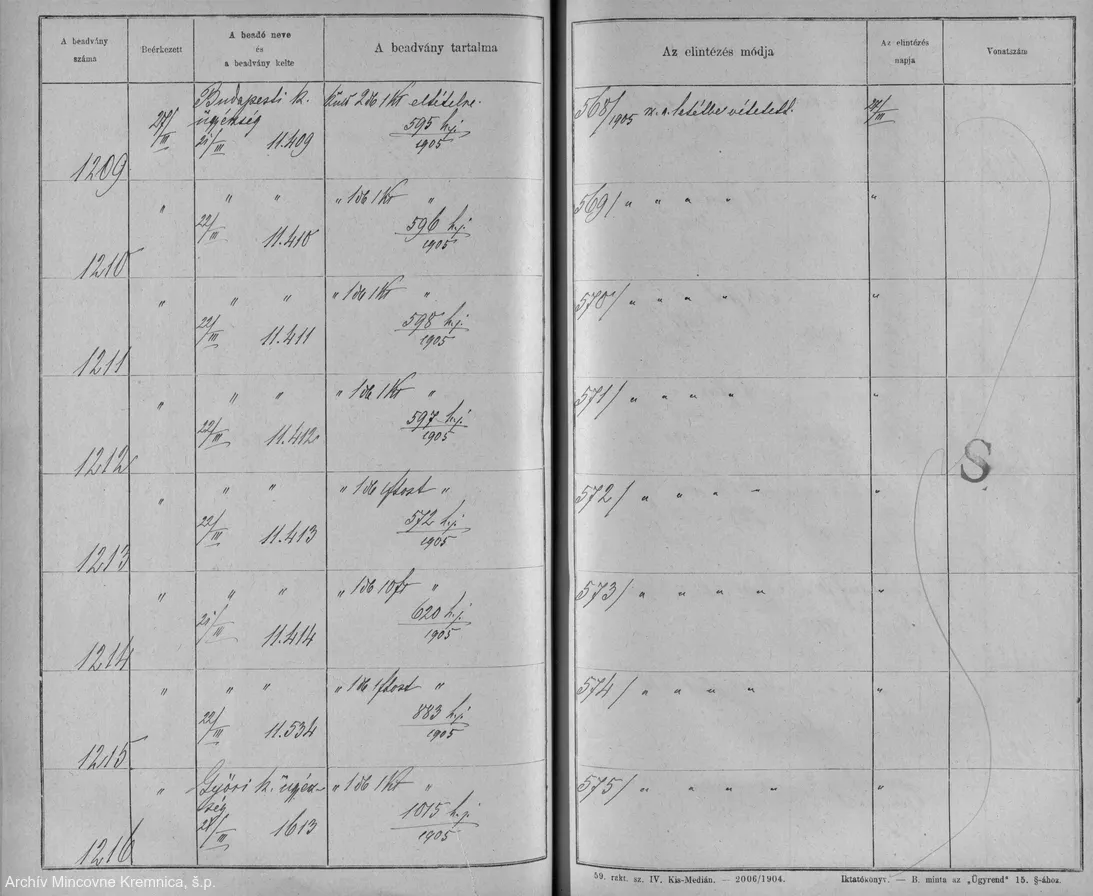 A beadvány
száma
Beérkezett
A beadó neve
és
a beadvány kelte
A beadvány tartalma
Az elintézés módja
Az elintézés
napja
Vonatszám
1209
27/III
Budapesti k.
ügyénség
21/III 11.409
Küld 2 db 1 Kr eltételre.
595 h.j.
1905
568/1905 sz. a. letétbe vétetett.
28/III
1210
" " "
22/III 11.410
" 1 db 1 Kr "
596 h.j.
1905
569/ " " " "
"
1211
" " "
22/III 11.411
" 1 db 1 Kr "
598 h.j.
1905
570/ " " " "
"
1212
" " "
22/III 11.412
" 1 db 1 Kr "
597 h.j.
1905
571/ " " " "
"
S
1213
" " "
22/III 11.413
" 1 db "
572 h.j.
1905
572/ " " " "
"
1214
" " "
21/III 11.414
" 1 db 10 fr "
620 h.j.
1905
573/ " " " "
"
1215
" " "
22/III 11.534
" 1 db "
883 h.j.
1905
574/ " " " "
"
1216
"
Győri k. ügyén-
ség
21/III 1613
" 1 db 1 Kr "
1015 h.j.
1905
575/ " " " "
"
59. rzkt. sz. IV. Kis-Medián. — 2006/1904.
Iktatókönyv. — B. minta az „Ügyrend" 15. §-ához.
Archív Mincovne Kremnica, š.p.